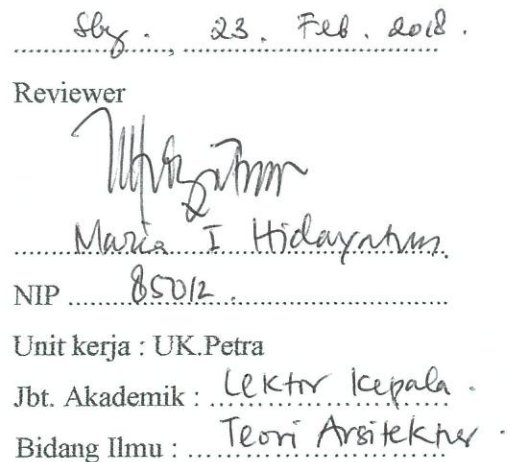 Sby. , 23. Feb. 2018.
Reviewer
Maria I Hidayatun
NIP 85012.
Unit kerja : UK.Petra
Jbt. Akademik : Lektor Kepala.
Bidang Ilmu : Teori Arsitektur.